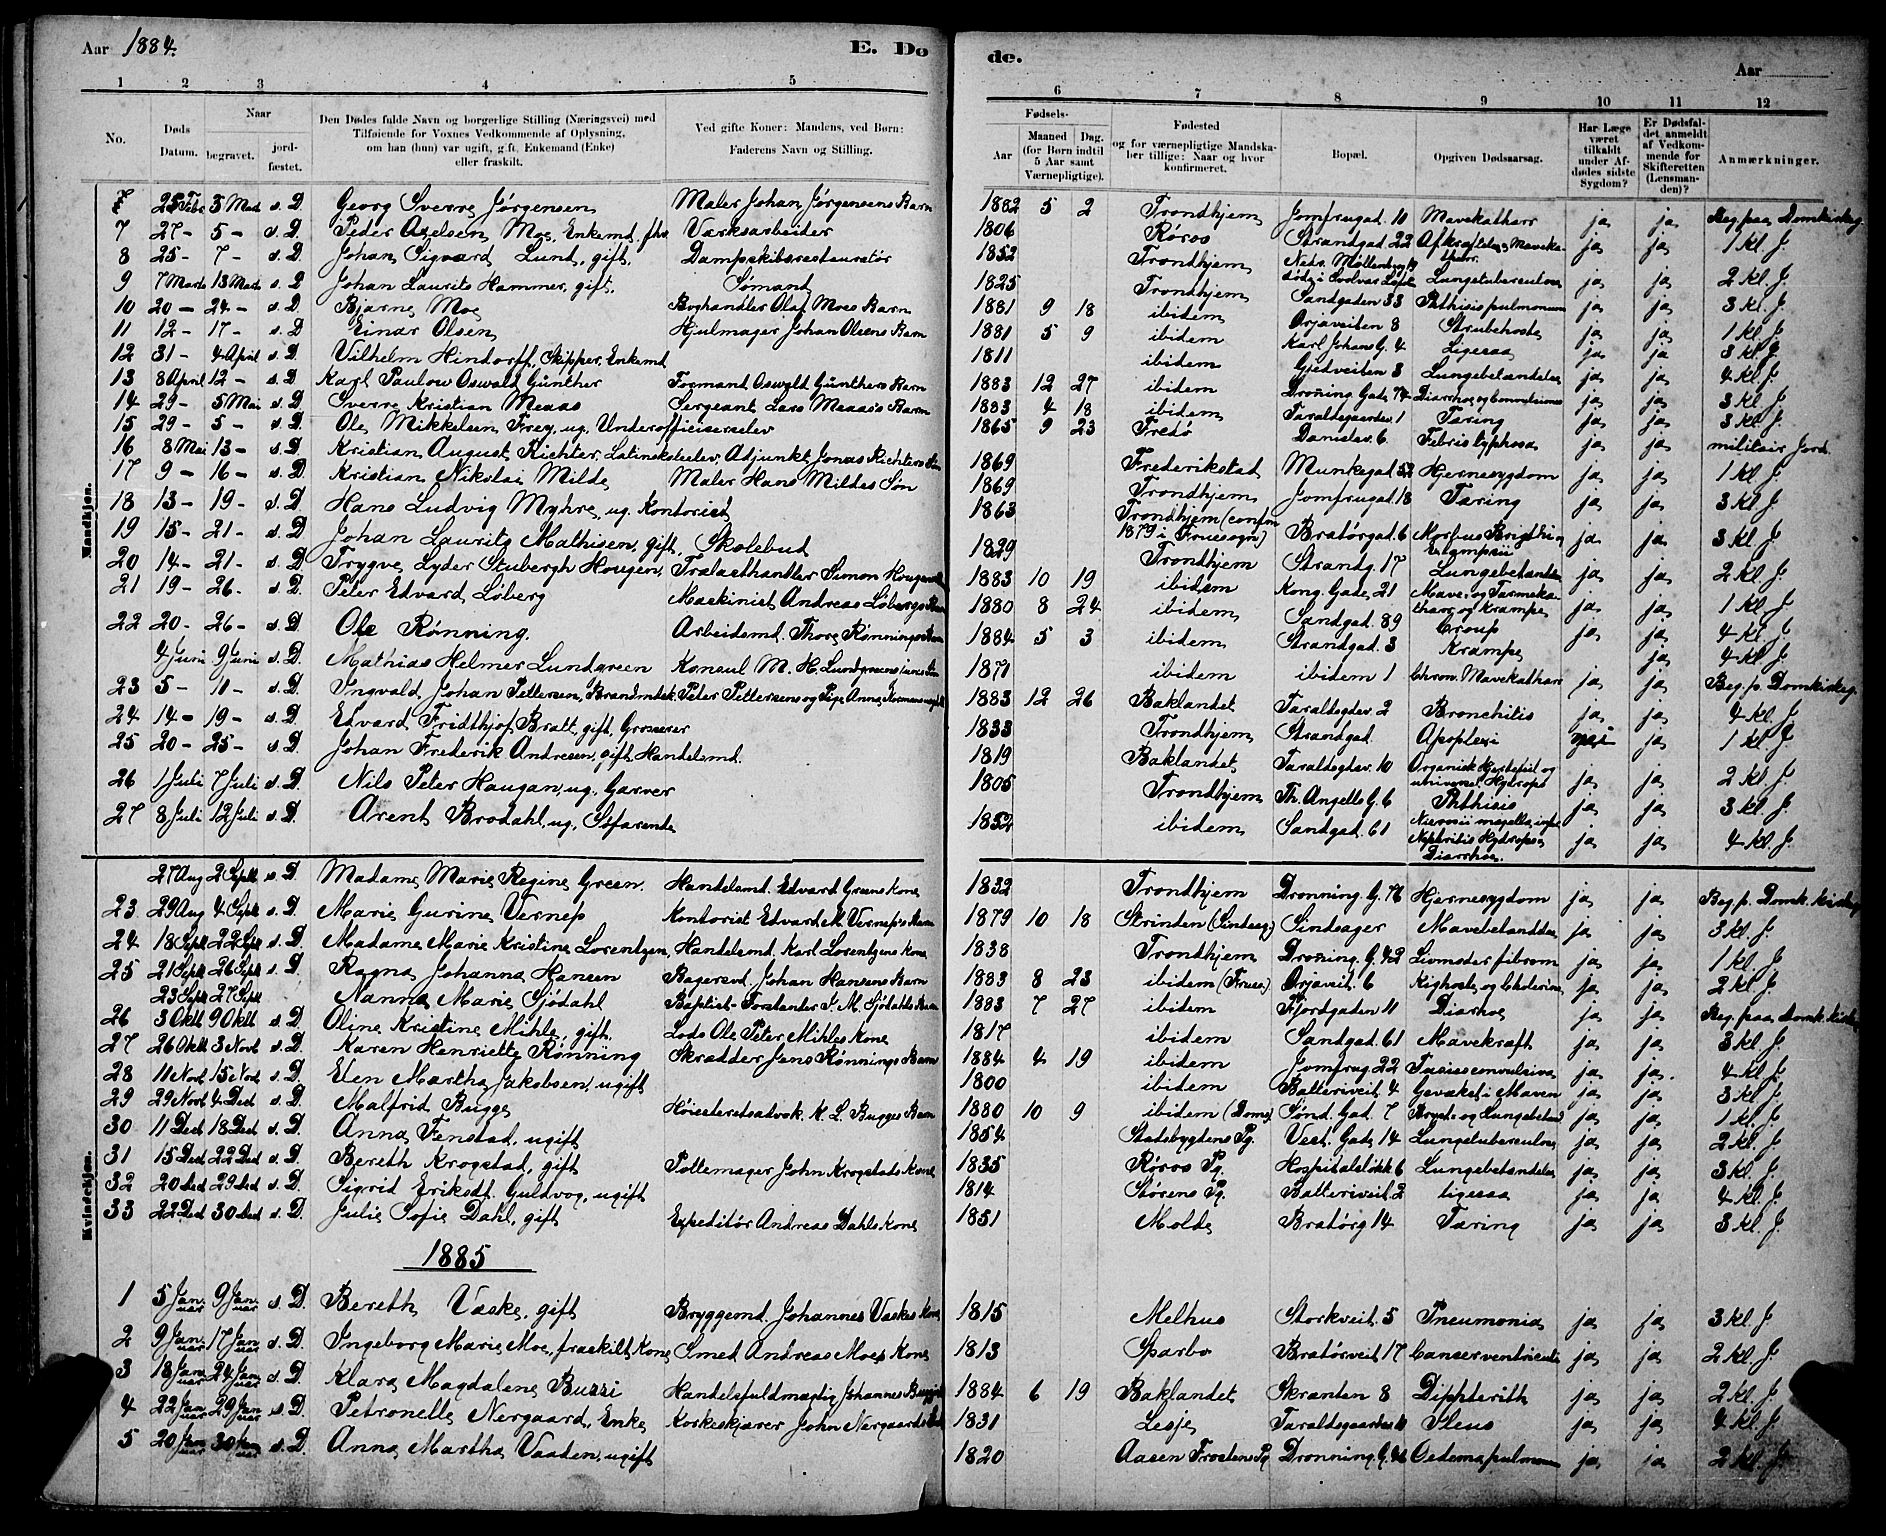 Aar 1884. E. Dø
de. Aar
1 2 3 4 5
6 7 8 9 10 11 12
No.
Døds Datum.
Naar
begravet.
jordfæstet.
Den Dødes fulde Navn og borgerlige Stilling (Næringsvei) med
Tilføiende for Voxnes Vedkommende af Oplysning,
om han (hun) var ugift, gift, Enkemand (Enke)
eller fraskilt.
Ved gifte Koner: Mandens, ved Børn:
Faderens Navn og Stilling.
Fødsels-
Aar
Maaned Dag.
(for Børn indtil
5 Aar samt
Værnepligtige).
Fødested
og for værnepligtige Mandska-
ber tillige: Naar og hvor
konfirmeret.
Bopæl.
Opgiven Dødsaarsag.
Har Læge
været
tilkaldt
under Af-
dødes sidste
Sygdom?
Er Dødsfal-
det anmeldt
af Vedkom-
mende for
Skifteretten
(Lensman-
den)?
Anmærkninger.
Mandkjøn.
Georg Sverre Jørgensen Maler Johan Jørgensens Barn 1882 5 2 Trondhjem Jomfrugad. 10 Mavekatharr ja ja Beg. paa Domkirkeg.
7 27- 5- s. D. Peder Axelsen Moe, Enkemd. Værksarbeider 1806 Røros Strandgad. 22 ja ja 1 kl. J.
8 25- 7- s. D. Johan Sigvard Lund, gift. Dampskibsrestauratør 1852 Trondhjem ja ja 2 kl. J.
9 7 Marts 13 Marts s. D. Johan Laurits Hammer, gift. Sømand 1825 Trondhjem Sandgaden 33 ja ja 3 kl. J.
10 20- 24- s. D. Bjarne Moe Boghandler Olaf Moes Barn 1881 9 18 ibidem Ørjaveiten 8 Strubehoste ja ja 1 kl. J.
11 12- 17- s. D. Einar Olsen Hjulmager Johan Olsens Barn 1881 5 9 ibidem Karl Johans G. 4 ja ja 3 kl. J.
12 31- 4 April s. D. Vilhelm Hindorff, Skipper, Enkemd 1811 ibidem Gjedveiten 3 ja ja 4 kl. J.
13 8 April 12- s. D. Karl Paulow Oswald Günther Formand Oswald Günthers Barn 1883 12 27 ibidem ja ja 3 kl. J.
14 29- 5 Mai s. D. Sverre Kristian Meaas Sergeant Lars Meaas's Barn 1883 4 18 ibidem Taraldsgaardsv. 1 Tæring ja ja 3 kl. J.
15 29- 5- s. D. Ole Mikkelsen Frey, ug. Underofficierselev 1865 9 23 Fredø Danielsv. 6 Febris typhosa ja ja militair Jord.
16 8 Mai 13- s. D. Kristian August Richter, Latinskoleelev, Adjunkt Jonas Richters Søn 1869 Frederikstad Munkegad 52 Hjernesygdom ja ja 1 kl J.
17 9- 16- s. D. Kristian Nikolai Milde Maler Hans Mildes Søn 1869 Trondhjem Jomfrugad. 18 Tæring ja ja 3 kl. J.
18 13- 19- s. D. Hans Ludvig Myhre, ug. Kontorist 1863 Trondhjem (confm 1879 i Fruesogn) Bratørgad. 6 ja ja 3 kl. J.
19 15- 21- s. D. Johan Laurits Mathisen, gift, Skolebud 1829 Trondhjem Strandg. 17 ja ja 2 kl. J.
20 14- 21- s. D. Trygve Lyder Stubergh Hougen, Trælasthandler Simon Hougens 1883 10 19 ibidem Kong. Gade. 21 ja ja 1 kl. J.
21 19- 26. s. D. Peter Edvard Löberg Maskinist Andreas Löbergs Barn 1880 8 24 ibidem Sandgad. 89 Croup ja ja 4 kl. J.
22 20- 26- s. D. Ole Rønning. Arbeidsmd. Thore Rønnings Barn 1884 5 3 ibidem Strandgad. 3 Krampe ja 4 kl. J.
4 Juni 9 Juni s. D. Mathias Helmer Lundgreen Konsul M. H. Lundgreens Søn 1871 ibidem ibidem 1 Chron. Mavekatharr ja ja Beg. p. Domkirkeg.
23 5- 11- s. D. Ingvald Johan Pettersen, Brandmdsk. Peter Pettersens og Pige Anne 1883 12 26 Baklandet Taraldsgdsv. 2 Bronchitis ja ja 4 kl. J.
24 14- 19- s. D. Edvard Fridthjof Bratt, gift, Grosserer 1833 Trondhjem Strandgad. Apoplexi nei ja 1 kl J.
25 20- 25- s. D. Johan Frederik Andresen, gift Handelsmd. 1819 Baklandet Taraldsgdsv. 10 Organisk Hjertefeil og univers. Hydrops ja ja 2 kl. J.
26 1 Juli 7 Juli s. D. Nils Peter Haugan, ug. Garver 1805 Trondhjem Th. Angells G. 6 Phthisis ja ja 3 kl. J.
27 8 Juli 12 Juli s. D. Arent Brodahl, ug. Søfarende 1852 ibidem Sandgad. 61 Nephritis Hydrops Diarrhoe. ja ja 4 kl J.
Kvindekjøn.
27 Aug 2 Sept s. D. Madame Marie Regine Green. Handelsmd. Edvard Greens Kone 1832 Trondhjem Dronning. G. 76 Hjernesygdom ja ja Beg. p. Domk. kirkeg
23 29 Aug 4 Sept s. D. Marie Gurine Verness Kontorist Edvard M. Verness's Barn 1879 10 18 Strinden Sindsager ja ja 3 kl. J.
24 18 Sept 22 Sept s. D. Madame Marie Kristine Lorentzen, Handelsmd. Karl Lorentzens Kone 1838 Trondhjem Dronning. G. 42 Livmoder fibrom ja ja 1 kl. J.
25 21 Sept 26 Sept s. D. Ragna Johanna Hansen Bagersvd. Johan Hansens Barn 1883 8 23 ibidem (Frues.) Ørjaveit. 6 Kighoste og Cholerine ja ja 2 kl. J.
23 Sept 27 Sept Nanna Marie Sjödahl Baptist-Forstander J. M. Sjödahls Barn 1883 7 27 ibidem Fjordgaden 11 Diarhoe ja ja Beg. paa Domk. kirkeg
26 3 Oktb 9 Oktb s. D. Oline Kristine Mihle, gift. Lods Ole Peter Mihles Kone 1817 ibidem Sandgad. 61 Mavekræft ja ja 3 kl. J.
27 26 Oktb 3 Novb s. D. Karen Henriette Rønning Skrædder Jens Rønnings Barn 1884 4 19 ibidem Jomfrug 22 Tussis convulsiva ja ja. 4 kl. J.
28 11 Novb 15 Novb s. D. Elen Martha Jakobsen, ugift 1800 ibidem Batteriveit. 4 Gevækst i Maven ja ja 3 kl. J.
29 29 Novb 4 Decb s. D. Malfrid Bugge Høiesteretsadvok. K. L. Bugges Barn 1880 10 9 ibidem (Doms) Sønd. Gad. 7 Bryst- og Lungebetænd. ja ja 1 kl. J.
30 11 Decb 18 Decb s. D. Anna Fenstad, ugift 1854 Stadsbygdens Pg. Vest. Gade 14 Lungetuberculose ja ja 2 kl. J.
31 15 Decb 22 Decb s. D. Bereth Krogstad, gift Pottemager John Krogstads Kone 1835 Røros Pg. Hospitalsløkk 6 Lungebetændelse ja ja 3 kl. J.
32 20 Decb 29 Decb s. D. Sigrid Eriksdt. Guldvog, ugift 1814 Størens Pg. Batteriveit. 2 ligesaa ja ja 4 kl. J.
33 22 Decb 30 Decb s. D. Julie Sofie Dahl, gift Expeditör Andreas Dahls Kone 1851 Molde Bratørg 14 Tæring ja ja 3 kl. J.
1885
1 5 Januar 9 Januar s. D. Bereth Væske, gift Bryggemd. Johannes Væskes Kone 1815 Melhus Storkveit. 5 Pneumonia ja ja 3 kl. J.
2 9 Januar 17 Januar s. D. Ingeborg Marie Moe, fraskilt Kone Smed Andreas Moes Kone 1813 Sparbo Bratørveit. 17 Cancer ventriculi ja ja 2 kl. J.
3 18 Januar 24 Januar s. D. Klara Magdalene Buzzi Handelsfuldmægtig Johannes 1884 6 19 Baklandet Skrænten 8 Diphterith ja ja 2 kl. J.
4 22 Januar 29 Januar s. D. Petronelle Nergaard, Enke Korkeskjærer John Nergaards 1831 Lesje Taraldsgaardsv. 10 Ileus ja ja 4 kl. J.
5 20 Januar 30 Januar s. D. Anna Martha Vaaden, ugift 1820 Aasen Frostens Pg. Dronning. G. Oedema pulmonum ja ja 2 kl. J.